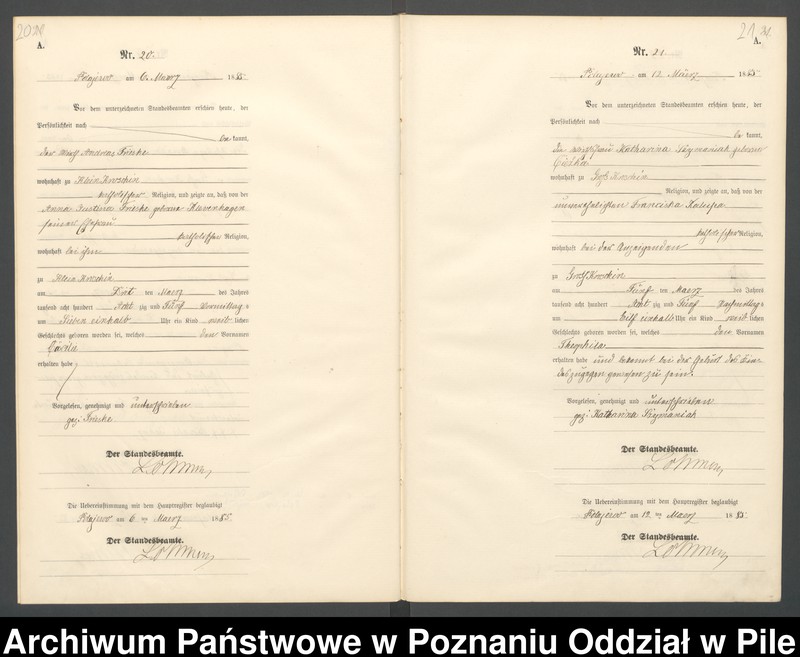 20
A.
Nr. 20.
am 6. Maerz 1885
Vor dem unterzeichneten Standesbeamten erschien heute, der
Persönlichkeit nach
be kannt,
der Andreas Frieske
wohnhaft zu Klein Kroschin
katholischer Religion, und zeigte an, daß von der
Anna Justina Frieske geborene Klavenhagen
seiner Ehefrau
katholischer Religion,
wohnhaft bei ihm
zu Klein Kroschin
am ten Maerz des Jahres
tausend acht hundert Acht zig und Fünf Vormittags
um Sieben einhalb Uhr ein Kind weib lichen
Geschlechts geboren worden sei, welches den Vornamen
erhalten habe
Vorgelesen, genehmigt und unterschrieben
gez. Frieske
Der Standesbeamte.
Die Uebereinstimmung mit dem Hauptregister beglaubigt
am 6. ten Maerz 1885
Der Standesbeamte.
21
A.
Nr. 21
am 12. März 1885
Vor dem unterzeichneten Standesbeamten erschien heute, der
Persönlichkeit nach
be kannt,
die Katharina Szymaniak geborene
wohnhaft zu Groß Kroschin
Religion, und zeigte an, daß von der
unverehelichten Franciska Kaluspa
katholischer Religion,
wohnhaft bei der Anzeigenden
zu Groß Kroschin
am Fünf ten Maerz des Jahres
tausend acht hundert Acht zig und Fünf Nachmittags
um Elf einhalb Uhr ein Kind weib lichen
Geschlechts geboren worden sei, welches den Vornamen
Theophila
erhalten habe und bekannt bei der Geburt des Kin
des zugegen gewesen zu sein.
Vorgelesen, genehmigt und unterschrieben
gez. Katharina Szymaniak
Der Standesbeamte.
Die Uebereinstimmung mit dem Hauptregister beglaubigt
am 12. ten Maerz 1885.
Der Standesbeamte.
Archiwum Państwowe w Poznaniu Oddział w Pile